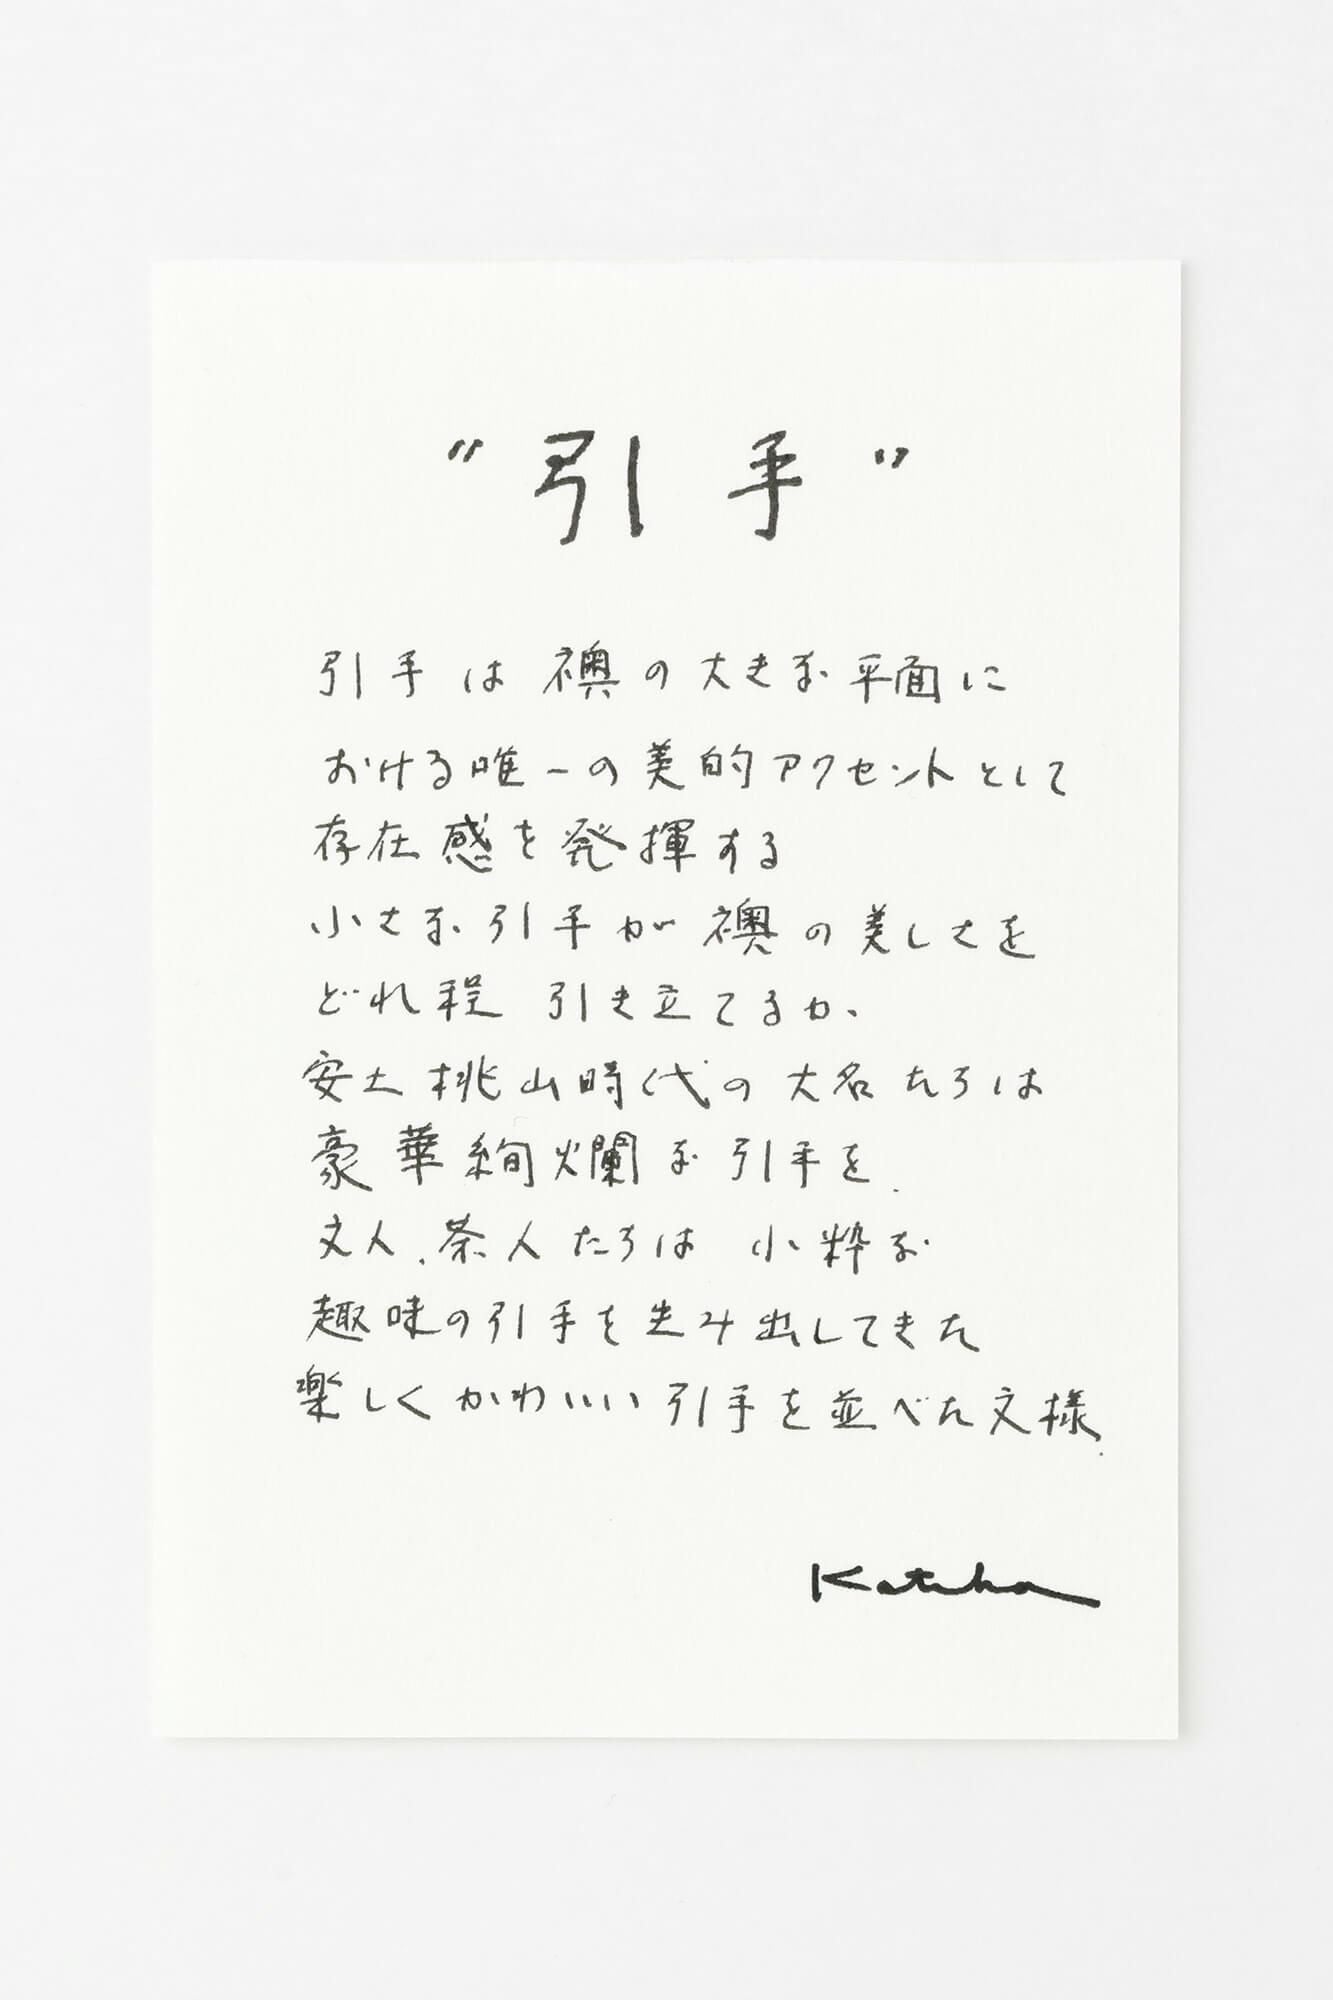 "引手"
引手は襖の大きな平面に
おける唯一の美的アクセントとして
存在感を発揮する
小さな引手が襖の美しさを
どれ程 引き立てるか、
安土桃山時代の大名たちは
豪華絢爛な引手を、
文人、茶人たちは 小粋な
趣味の引手を生み出してきた
楽しくかわいい引手を並べた文様、